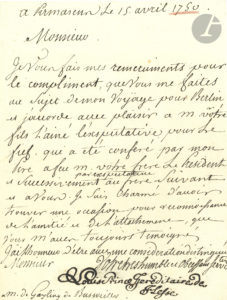 a Pirmasens Le 15 avril 1750.
Monsieur
Je Vous fais mes remerciments pour
le compliment, que Vous me faites
au Sujet de mon Voyage pour Berlin
et j'accorde avec plaisir a m. vôtre
fils l'ainé l'expectative pour Le
fief, que a été conferé par mon
Pere a feu m. votre frere Le President
et Successivement au frere Suivant
a Vous. Je Suis Charmé d'avoir
trouver une occasion pour reconnoissance
de l'amitié et de l'attachement, que
Vous m'avez toujours temoigné
J'ai l'honneur d'etre avec une consideration distinguée
Monsieur
Louis Prince Hereditaire de
Hesse
a m. de